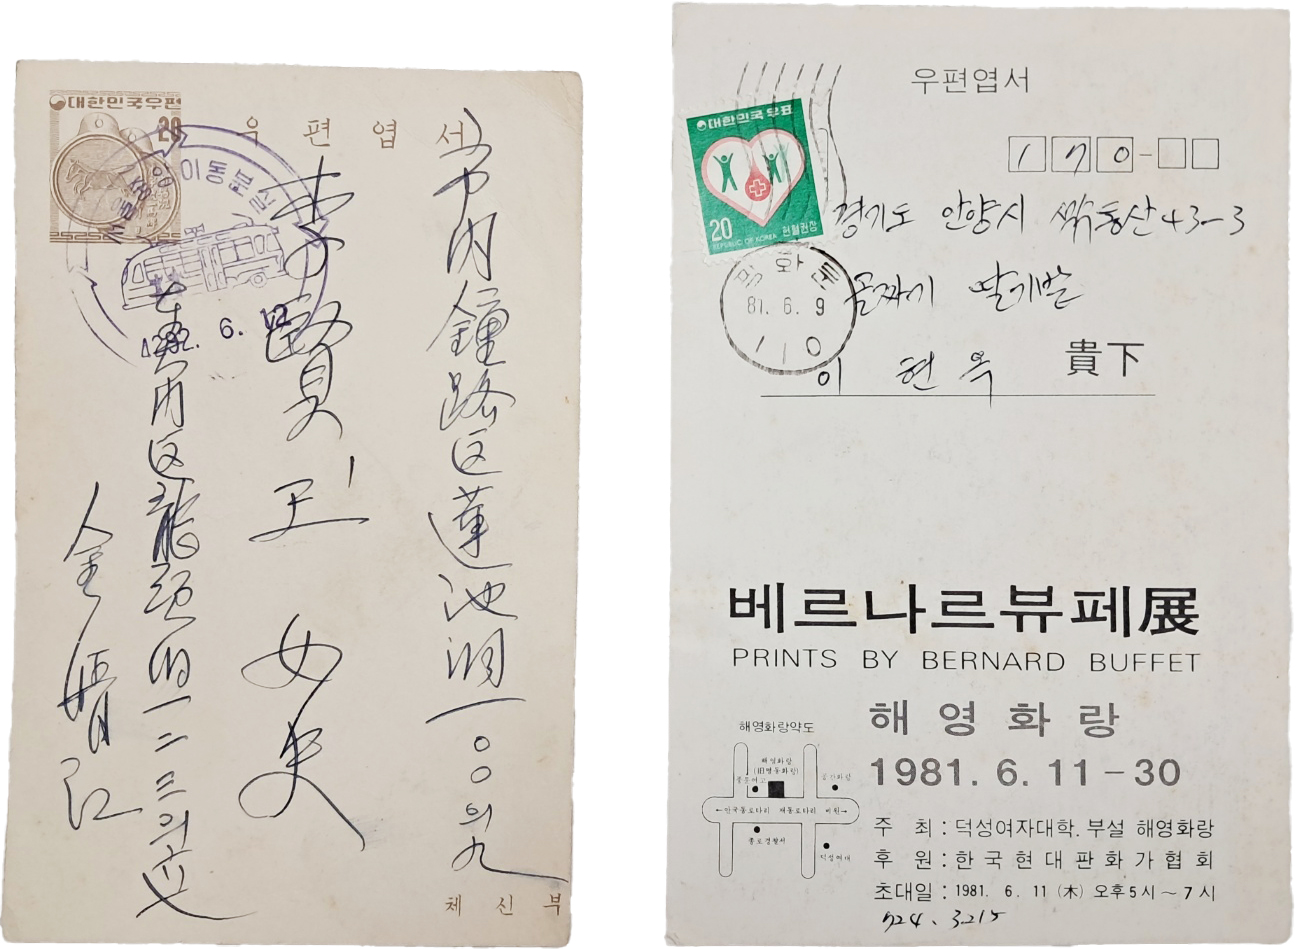 대한민국우편
20
우편엽서
이동우체국
6. 12
市内鐘路区蓮池洞一００의九
李賢玉 女史
龍頭洞一二三의
金
체신부
우편엽서
대한민국우표
20
REPUBLIC OF KOREA 헌혈권장
170-
경기도 안양시 석수동산 43-3
골짜기 딸기밭
이현옥 貴下
광화문
81. 6. 9
110
베르나르뷰페展
PRINTS BY BERNARD BUFFET
해영화랑
1981. 6. 11-30
해영화랑약도
해영화랑
←안국동로타리 재동로타리 비원→
종로경찰서
덕성여대
주 최 : 덕성여자대학. 부설 해영화랑
후 원 : 한국현대판화가협회
초대일 : 1981. 6. 11 (木) 오후5시~7시
724. 3215